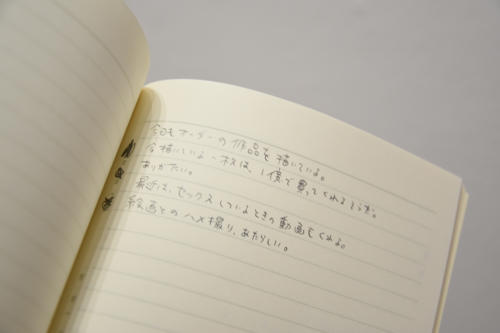 今日もオーダーの作品を描いている。
今描いている一枚は、1億で買ってくれるそうだ。
ありがたい。
最近は、セックスしているときの動画もくれる。
絵画とのハメ撮り、あたらしい。